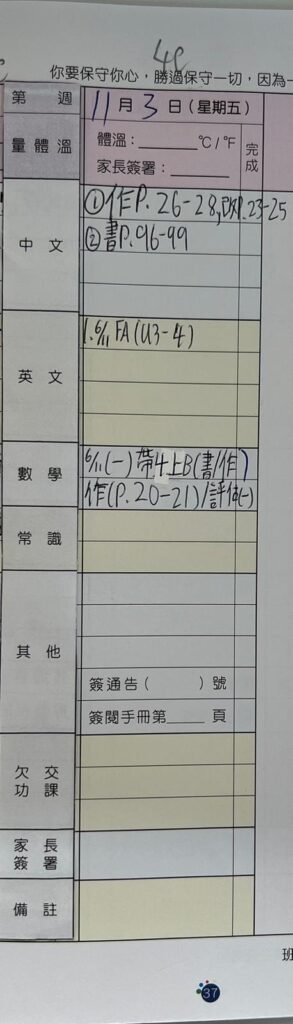 4C
你要保守你心，勝過保守一切，因為一
第 週
11月3日(星期五)
量體溫
體溫：________℃/℉
家長簽署：________
完成
中文
①作P.26-28,改P.23-25
②書P.96-99
英文
1. 6/11 FA(U3-4)
數學
6/11(一)帶4上B(書/作)
作(P.20-21)/評估(一)
常識
其他
簽通告( )號
簽閱手冊第____頁
欠交
功課
家長
簽署
備註
班
37